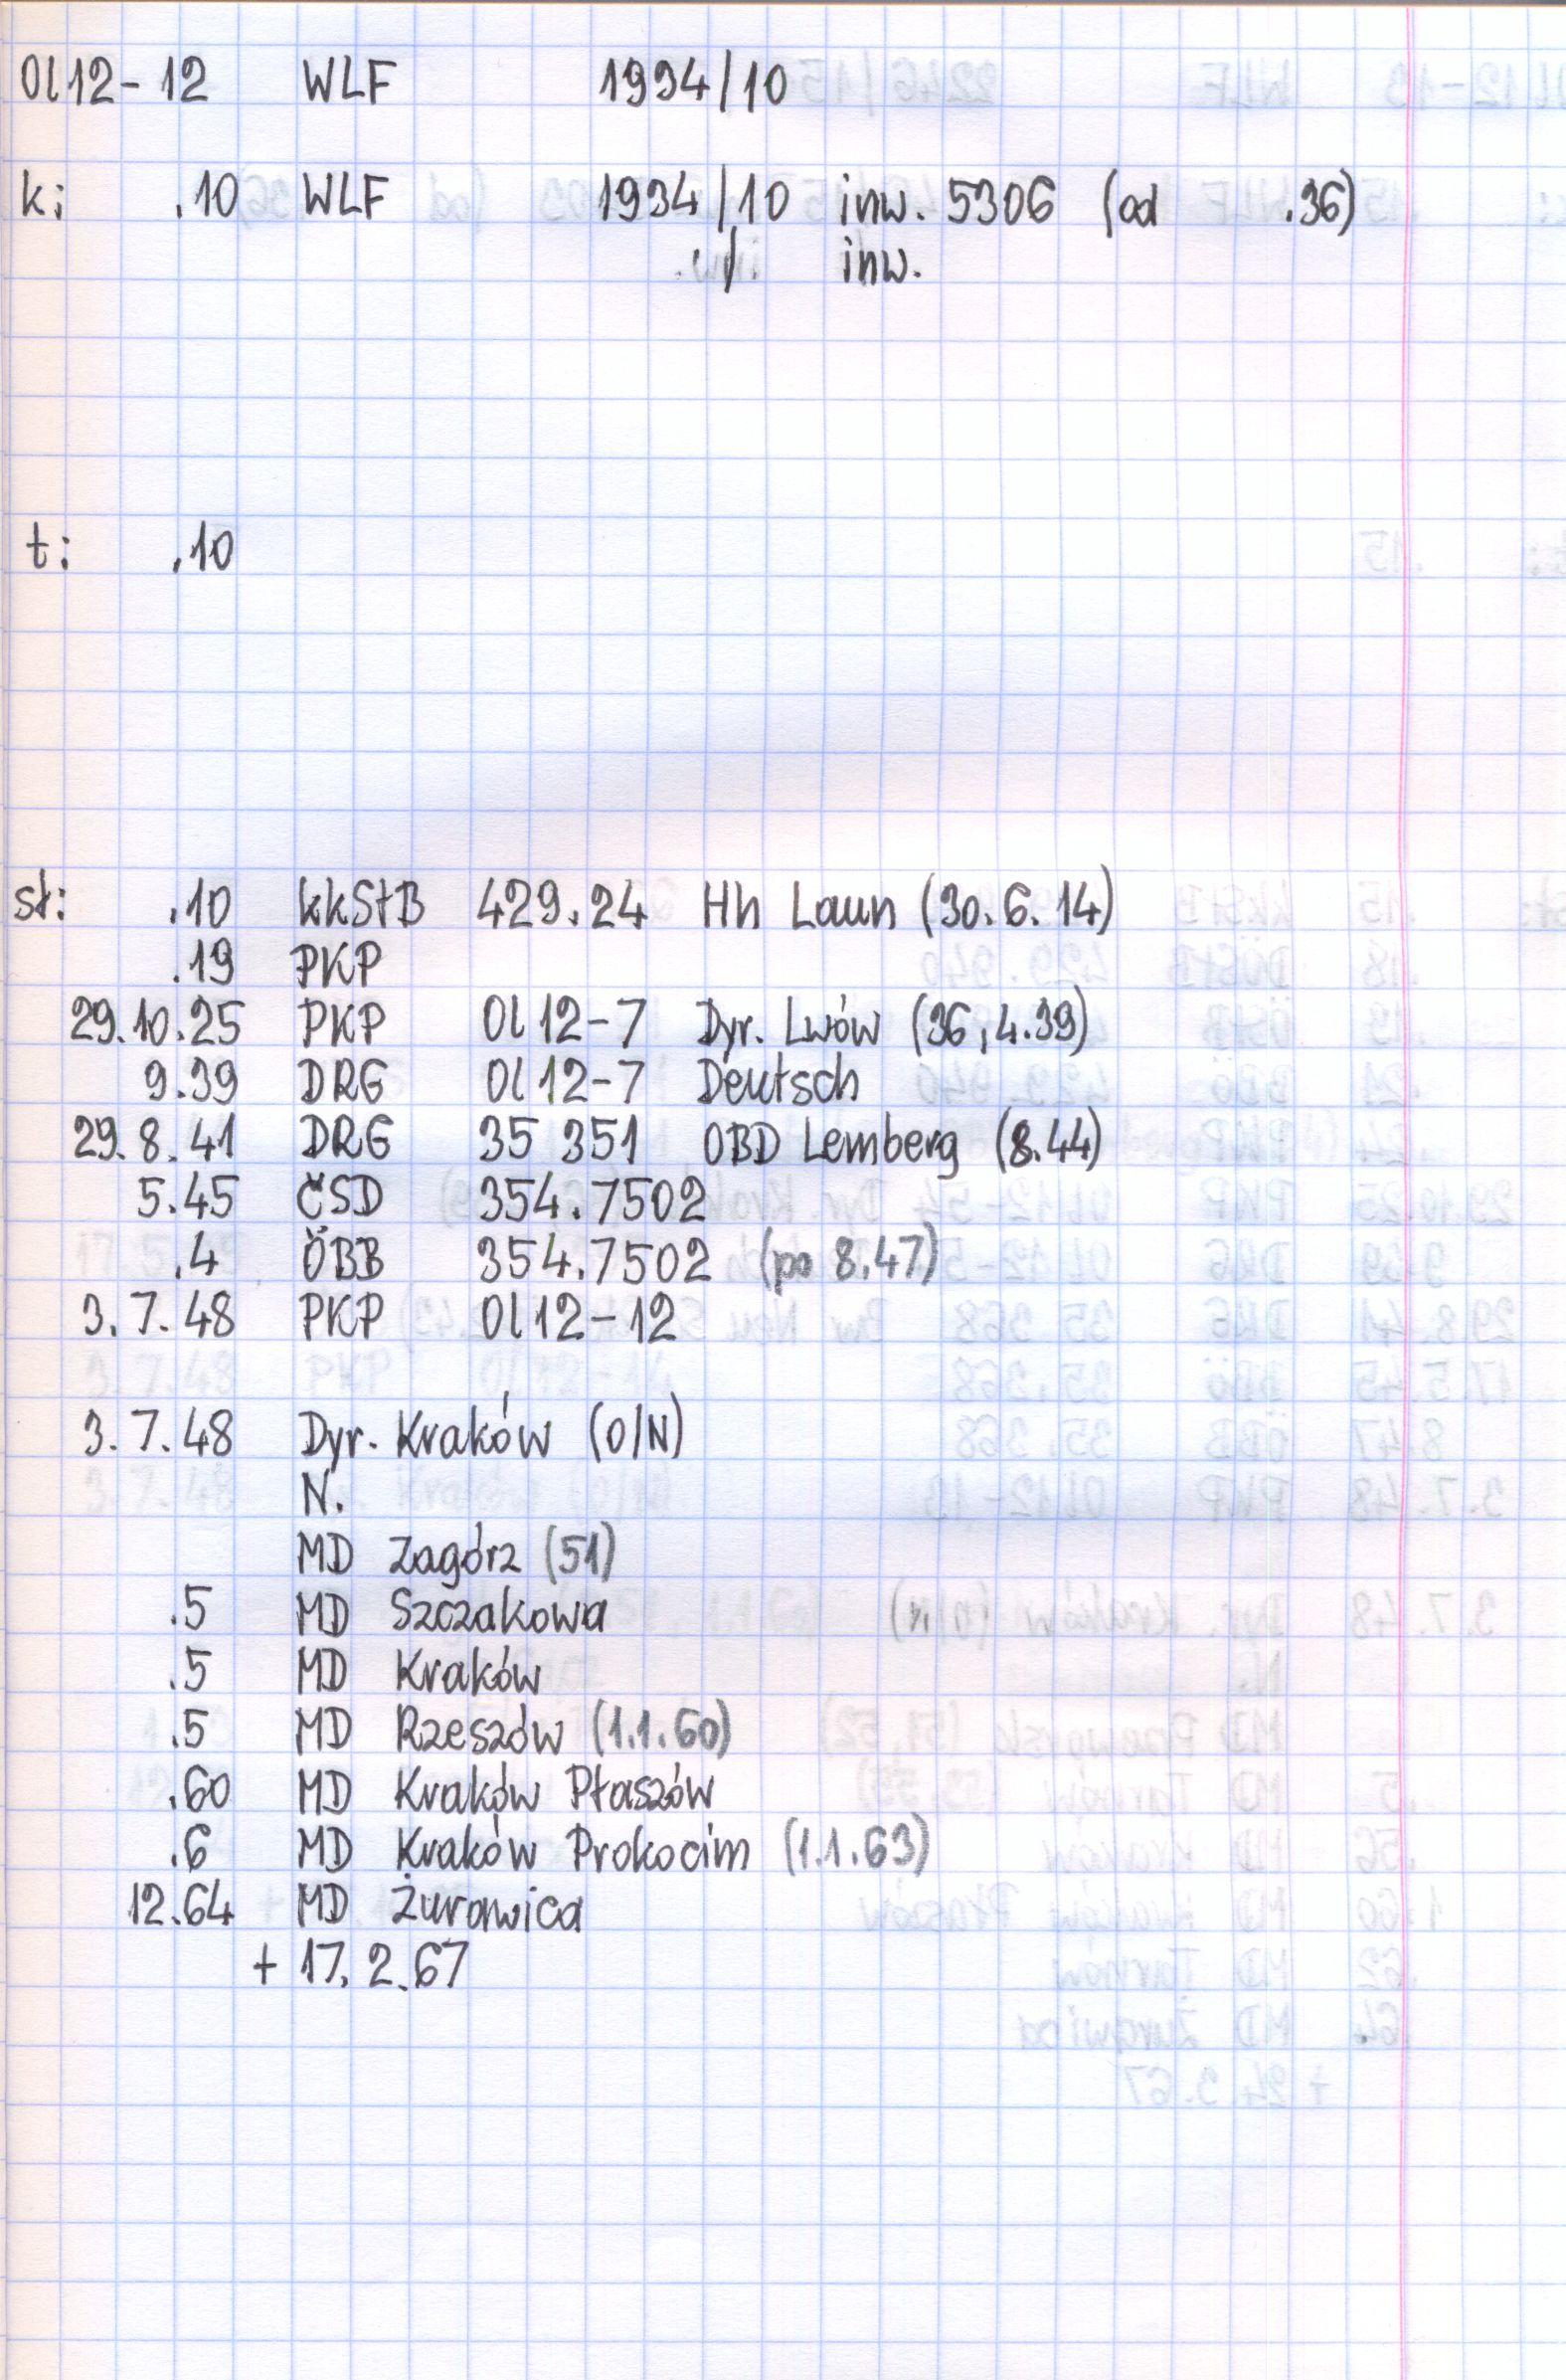 Ol12-12 WLF 1994/10
k: .10 WLF 1994/10 inw. 5306 (od .36)
/ inw.
t: .10
st: .10 kkStB 429.24 Hh Laun (30.6.14)
.19 PKP
29.10.25 PKP Ol12-7 Dyr. Lwów (36, 4.39)
9.39 DRG Ol12-7 Deutsch
29.8.41 DRG 35 351 OBD Lemberg (8.44)
5.45 ČSD 354.7502
.4 ÖBB 354.7502 (po 8.47)
3.7.48 PKP Ol12-12
3.7.48 Dyr. Kraków (O/N)
N.
MD Zagórz (51)
.5 MD Szczakowa
.5 MD Kraków
.5 MD Rzeszów (1.1.60)
.60 MD Kraków Płaszów
.6 MD Kraków Prokocim (1.1.63)
12.64 MD Żurawica
+ 17.2.67